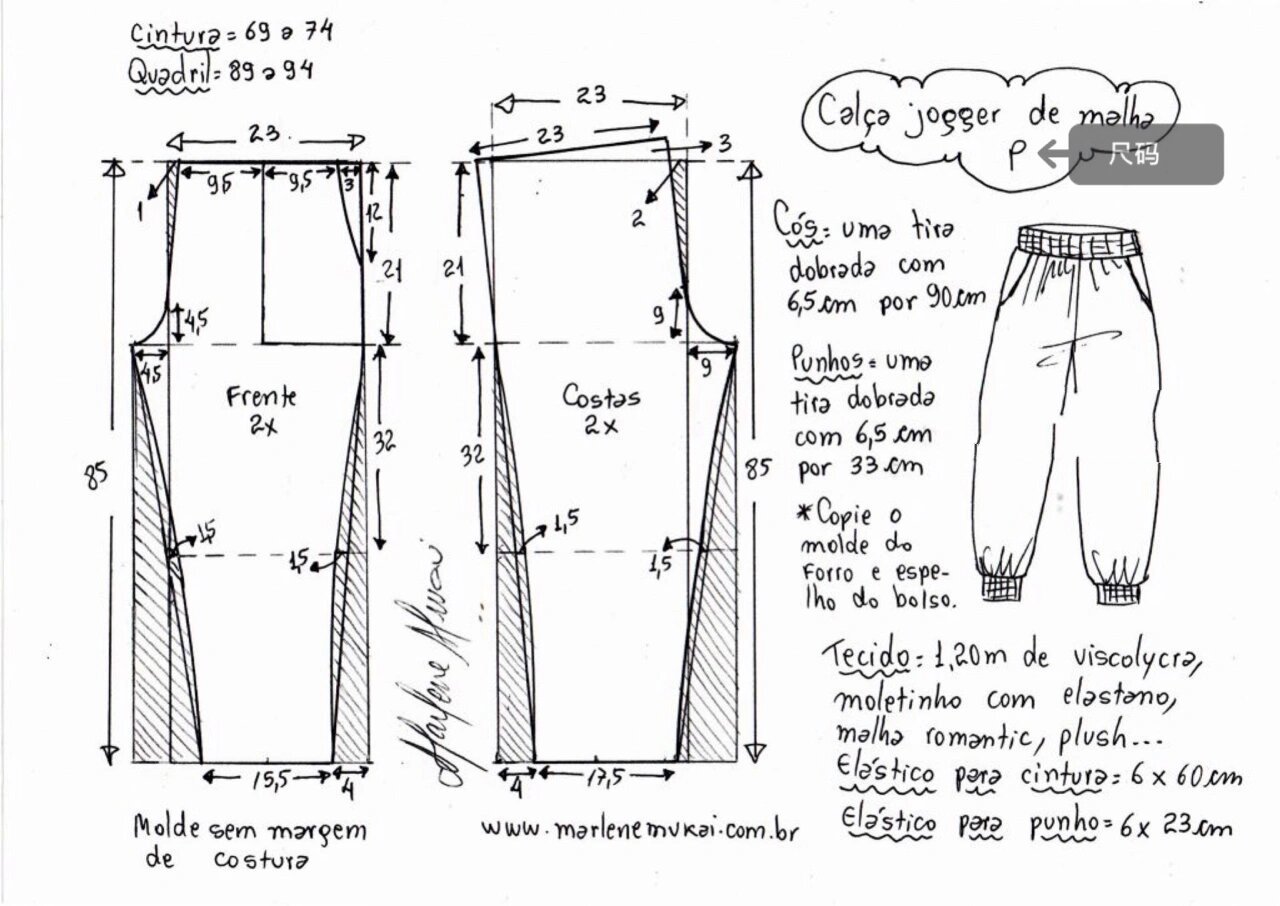 Cintura = 69 a 74
Quadril = 89 a 94
23
9,5
9,5
3
1
12
21
4,5
4,5
Frente
2x
32
85
1,5
1,5
15,5
4
Molde sem margem
de costura
23
23
3
2
21
9
9
Costas
2x
32
85
1,5
1,5
4
17,5
Marlene Mukai
www.marlenemukai.com.br
Calça jogger de malha
P
尺码
Cós = uma tira
dobrada com
6,5 cm por 90 cm
Punhos = uma
tira dobrada
com 6,5 cm
por 33 cm
*Copie o
molde do
forro e espe-
lho do bolso.
Tecido = 1,20m de viscolycra,
moletinho com elastano,
malha romantic, plush...
Elástico para cintura = 6 x 60 cm
Elástico para punho = 6 x 23 cm